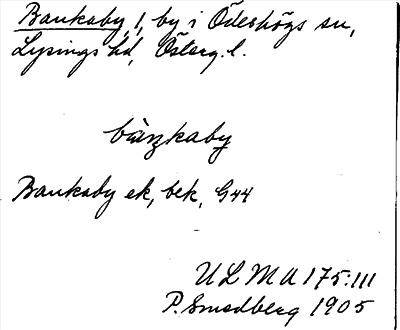 Bankaby, 1, by i Ödeshögs sn,
Lysings hd, Österg. l.
bànkaby
Bankaby ek, bek, G44
ULMA 175:111
P. Smedberg 1905